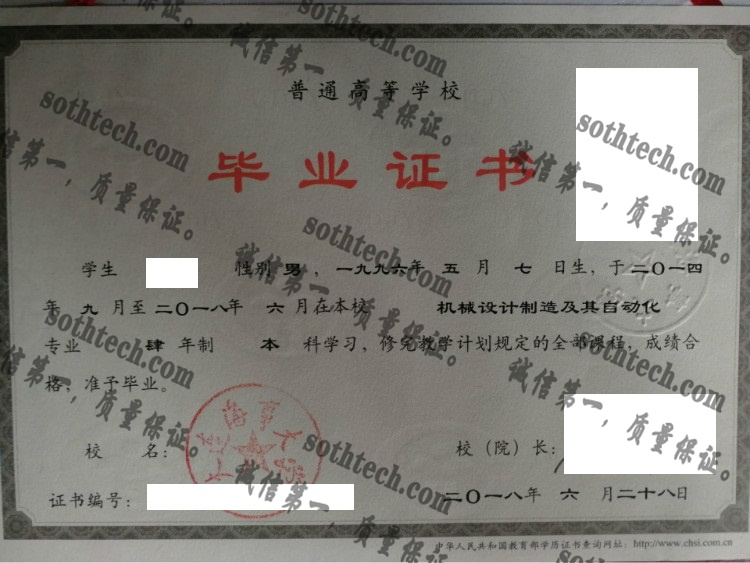 普通高等学校
毕业证书
学生 性别 男 ，一九九六年 五 月 七 日生，于二〇一四
年 九 月至二〇一八年 六 月在本校 机械设计制造及其自动化
专业 肆 年制 本 科学习，修完教学计划规定的全部课程，成绩合
格，准予毕业。
校 名： 校（院）长：
大连海事大学
证书编号： 二〇一八年 六 月二十八日
中华人民共和国教育部学历证书查询网址：http://www.chsi.com.cn
sothtech.com
诚信第一，质量保证。
sothtech.com
诚信第一，质量保证。
sothtech.com
诚信第一，质量保证。
sothtech.com
诚信第一，质量保证。
sothtech.com
诚信第一，质量保证。
sothtech.com
诚信第一，质量保证。
sothtech.com
诚信第一，质量保证。
sothtech.com
诚信第一，质量保证。